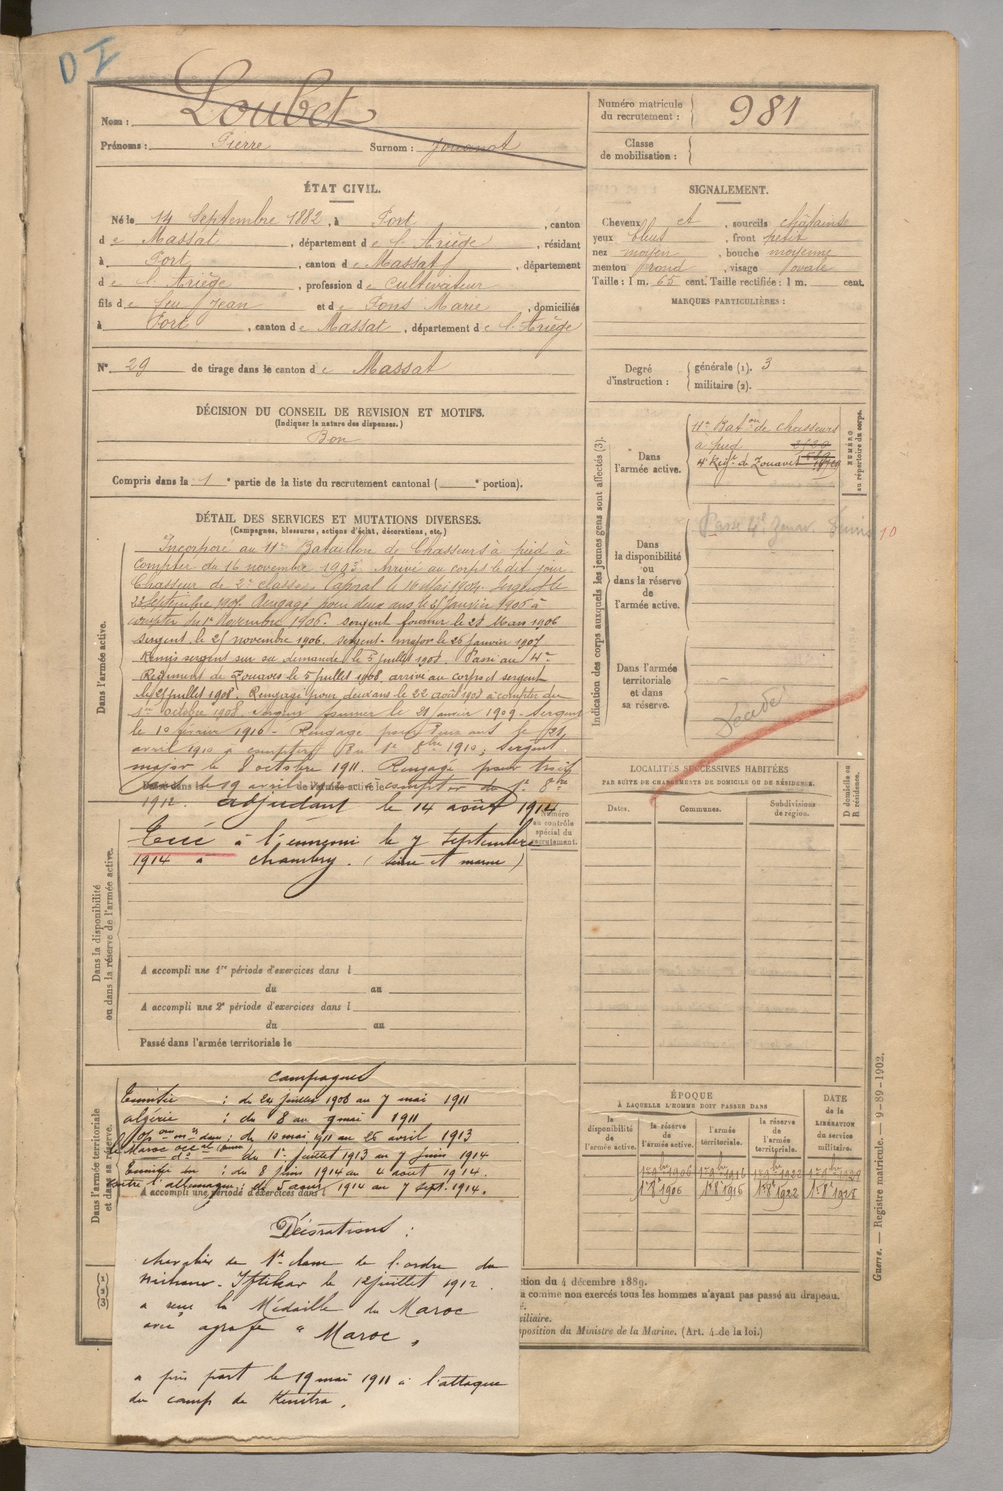 D I
Nom : Loubet
Prénoms : Pierre Surnom :
Numéro matricule du recrutement : 981
Classe de mobilisation :
ÉTAT CIVIL.
Né le 14 Septembre 1882, à Port, canton
de Massat, département de l'Ariège, résidant
à Port, canton de Massat, département
de l'Ariège, profession de Cultivateur
fils de feu Jean et de Pons Marie, domiciliés
à Port, canton de Massat, département de l'Ariège
N° 29 de tirage dans le canton de Massat
SIGNALEMENT.
Cheveux et, sourcils châtains
yeux bleus, front petit
nez moyen, bouche moyenne
menton rond, visage ovale
Taille : 1 m. 65 cent. Taille rectifiée : 1 m. cent.
MARQUES PARTICULIÈRES :
Degré d'instruction : générale (1). 3
militaire (2).
DÉCISION DU CONSEIL DE REVISION ET MOTIFS.
(Indiquer la nature des dispenses.)
Bon
Compris dans la 1e partie de la liste du recrutement cantonal ( e portion).
DÉTAIL DES SERVICES ET MUTATIONS DIVERSES.
(Campagnes, blessures, actions d'éclat, décorations, etc.)
Dans l'armée active.
Incorporé au 11e Bataillon de Chasseurs à pied à
compter du 16 novembre 1903. Arrivé au corps le dit jour
Chasseur de 2e classe. Caporal le 16 Mai 1904. Sergent le
Septembre 190 Rengagé pour deux ans le Janvier 1906 à
compter du 1er Novembre 1906. sergent fourrier le 28 Mars 1906
sergent le 21 novembre 1906. sergent-major le 26 janvier 1907
Remis sergent sur sa demande le 5 juillet 1908. Passé au 4e
Régiment de Zouaves le 5 juillet 1908, arrivé au corps et sergent
le juillet 1908. Rengagé pour deux ans le 22 août 1908 à compter du
1er octobre 1908. sergent fourrier le 21 janvier 1909. Sergent
le 10 février 1910 - Rengagé pour Deux ans le 21
avril 1910 à compter Du 1er 8bre 1910; Sergent
major le 8 octobre 1911. Rengagé pour trois
ans le 19 avril à compter du 1er 8bre
1912. adjudant le 14 août 1914
Numéro au contrôle spécial du recrutement.
Dans la disponibilité ou dans la réserve de l'armée active.
Tué à l'ennemi le 7 septembre
1914 à Chambry. (Seine et marne)
A accompli une 1re période d'exercices dans l
du au
A accompli une 2e période d'exercices dans l
du au
Passé dans l'armée territoriale le
Indication des corps auxquels les jeunes gens sont affectés (3).
Dans l'armée active.
11e Baton de Chasseurs
à pied
4e Regt de Zouaves
NUMÉRO au répertoire du corps.
Dans la disponibilité ou dans la réserve de l'armée active.
Passé 4e Zouav. Tunis 10
Dans l'armée territoriale et dans sa réserve.
Décédé
LOCALITÉS SUCCESSIVES HABITÉES
PAR SUITE DE CHANGEMENTS DE DOMICILE OU DE RÉSIDENCE.
Dates. Communes. Subdivisions de région. D domicile ou R résidence.
ÉPOQUE
À LAQUELLE L'HOMME DOIT PASSER DANS
la disponibilité de l'armée active. la réserve de l'armée active. l'armée territoriale. la réserve de l'armée territoriale. DATE de la LIBÉRATION du service militaire.
1er 9bre 1906
1er 8bre 1906 1er 8bre 1916 1er 8bre 1922 1er 8bre 1928
Dans l'armée territoriale et dans sa réserve.
Campagnes
Tunisie : du 24 juillet 1908 au 7 mai 1911
algérie : du 8 au 9 mai 1911
du 10 mai 1911 au 26 avril 1913
Maroc occal du 1er juillet 1913 au 7 juin 1914
Tunisie : du 8 juin 1914 au 4 août 1914.
contre l'allemagne : du 5 août 1914 au 7 sept. 1914.
A accompli une période d'exercices dans l
Décorations :
chevalier de 1re classe de l'ordre du
Nicham-Iftikar le 12 juillet 1912.
a reçu la Médaille du Maroc
avec agrafe "Maroc"
a pris part le 19 mai 1911 à l'attaque
du camp de Kenitra.
(1)
(2)
(3)
tion du 4 décembre 1889.
a comme non exercés tous les hommes n'ayant pas passé au drapeau.
xiliaire.
sposition du Ministre de la Marine. (Art. 4 de la loi.)
Guerre. — Registre matricule. — 9-89-1902.